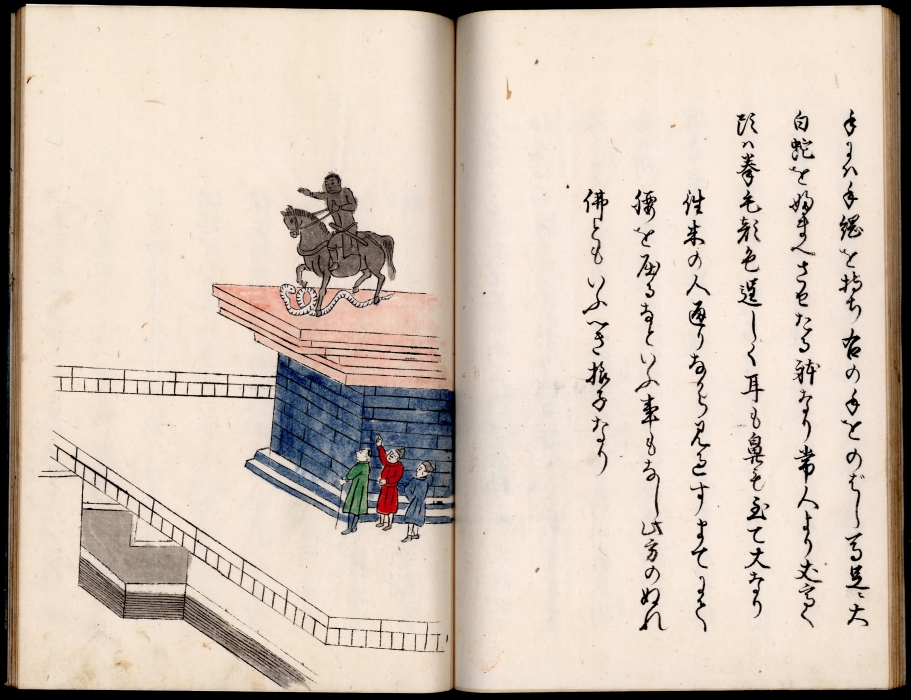 手には手綱を持ち右の手をのばし馬足に大
白蛇をふまへさせたる躰なり常人より丈高く
頭ハ拳毛彩色逞しく耳も鼻も至て大なり
往来の人通りながら見過すまてにて
腰を屈るなといふ事もなし此方のぬれ
佛ともいふへき様子なり